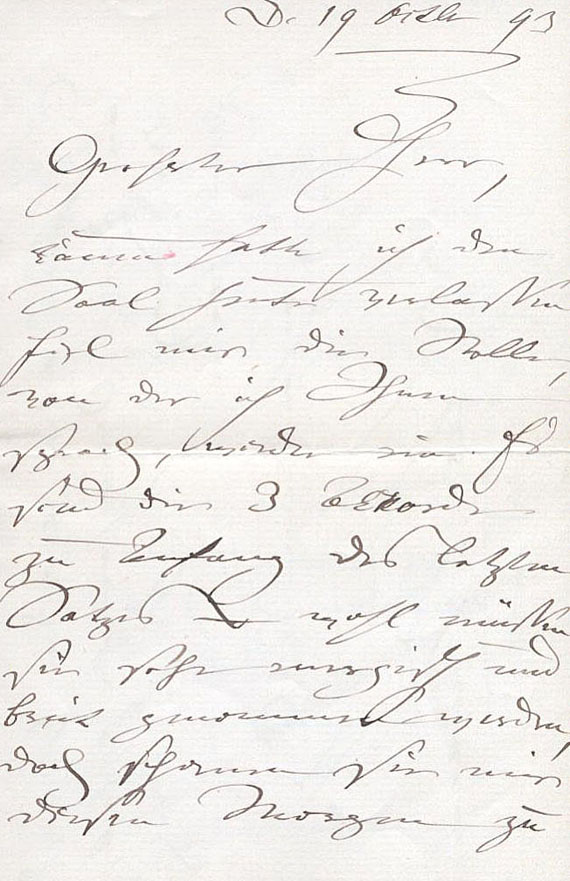 D. 19 Octbr 93
Geehrter Herr,
kaum hatte ich den
Saal heute verlassen
fiel mir die Stelle,
von der ich Ihnen
sprach, wieder ein. Es
sind die 3 Akkorde
zu Anfang des letzten
Satzes wohl müssen
sie sehr energisch und
breit genommen werden,
doch schienen sie mir
diesen Morgen zu